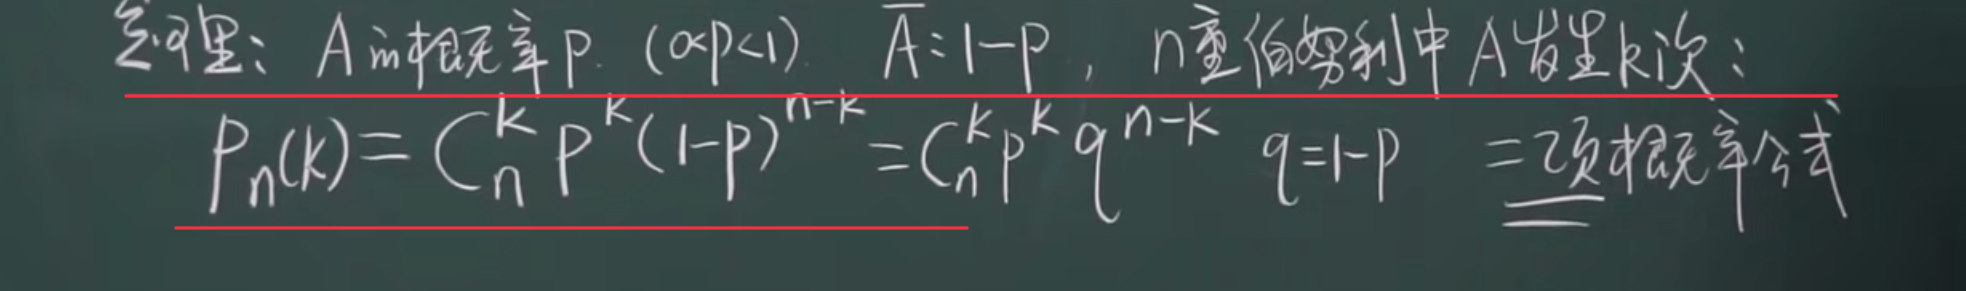 定理: A的概率P. (0<P<1). A̅:1-P, n重伯努利中A发生k次:
Pₙ(k)=Cₙᵏ Pᵏ(1-P)ⁿ⁻ᵏ=Cₙᵏ Pᵏ qⁿ⁻ᵏ q=1-P 二项概率公式